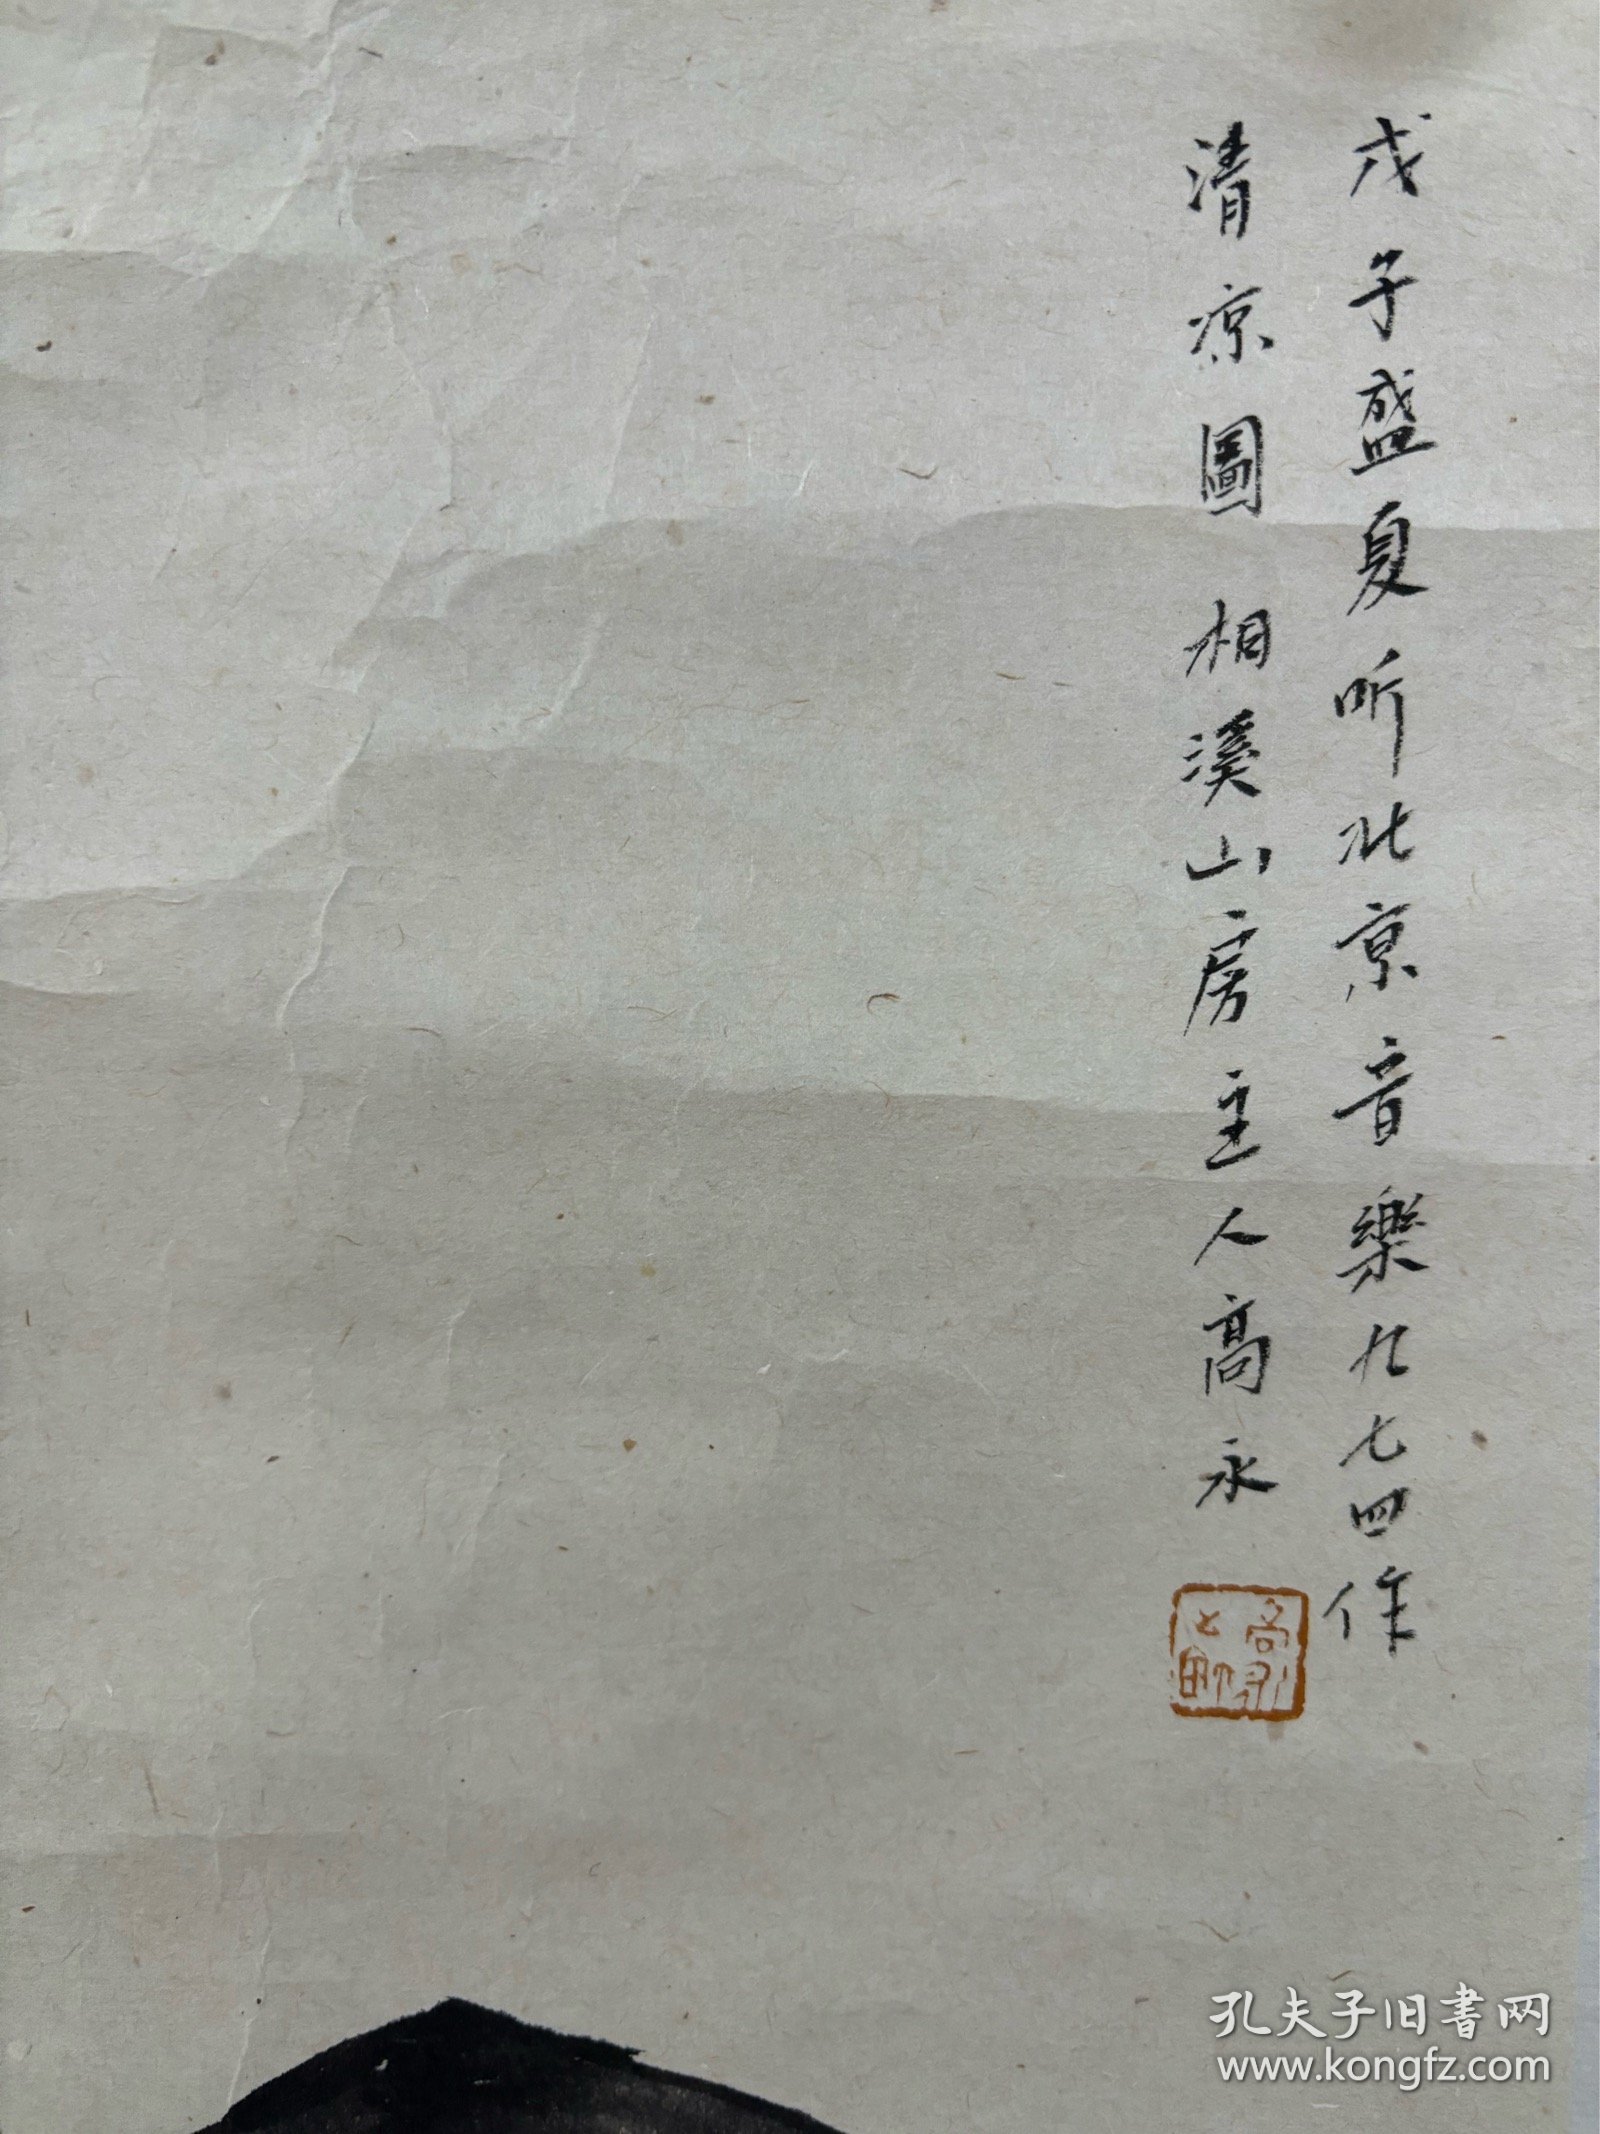 戊子盛夏听北京音樂九七四作
清凉圖 相溪山房主人高永
孔夫子旧書网
www.kongfz.com